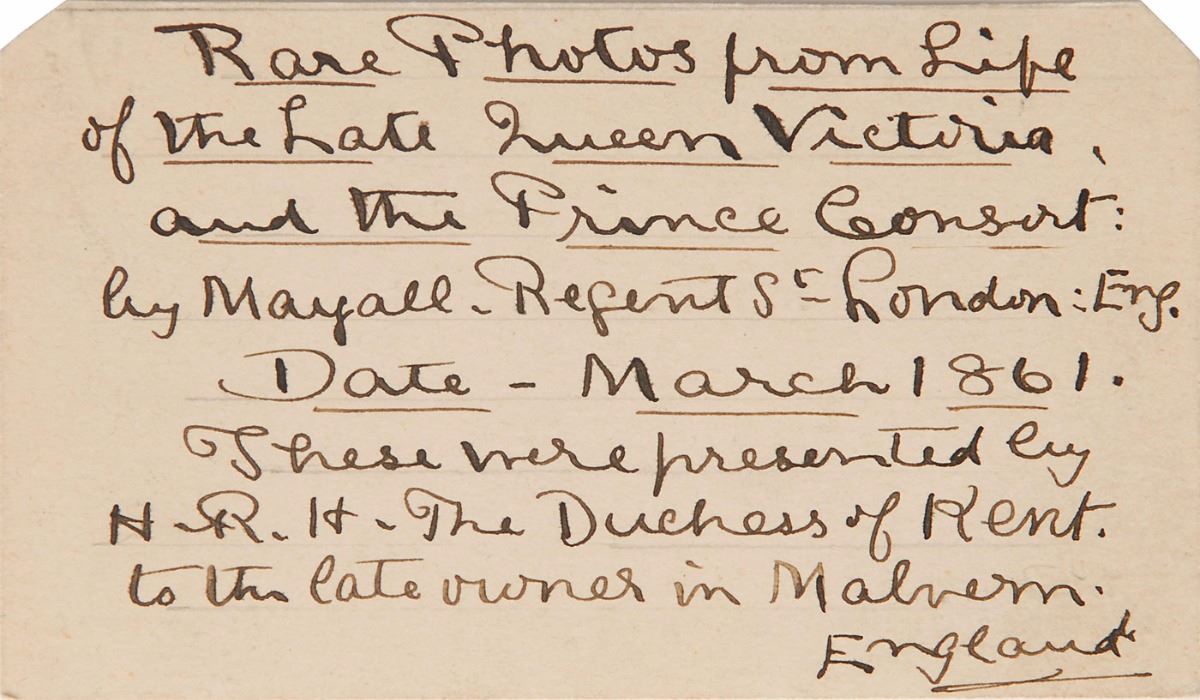 Rare Photos from Life
of the Late Queen Victoria,
and the Prince Consort:
by Mayall - Regent St - London: Eng.
Date - March 1861.
These were presented by
H.R.H. The Duchess of Kent.
to the late owner in Malvern.
England